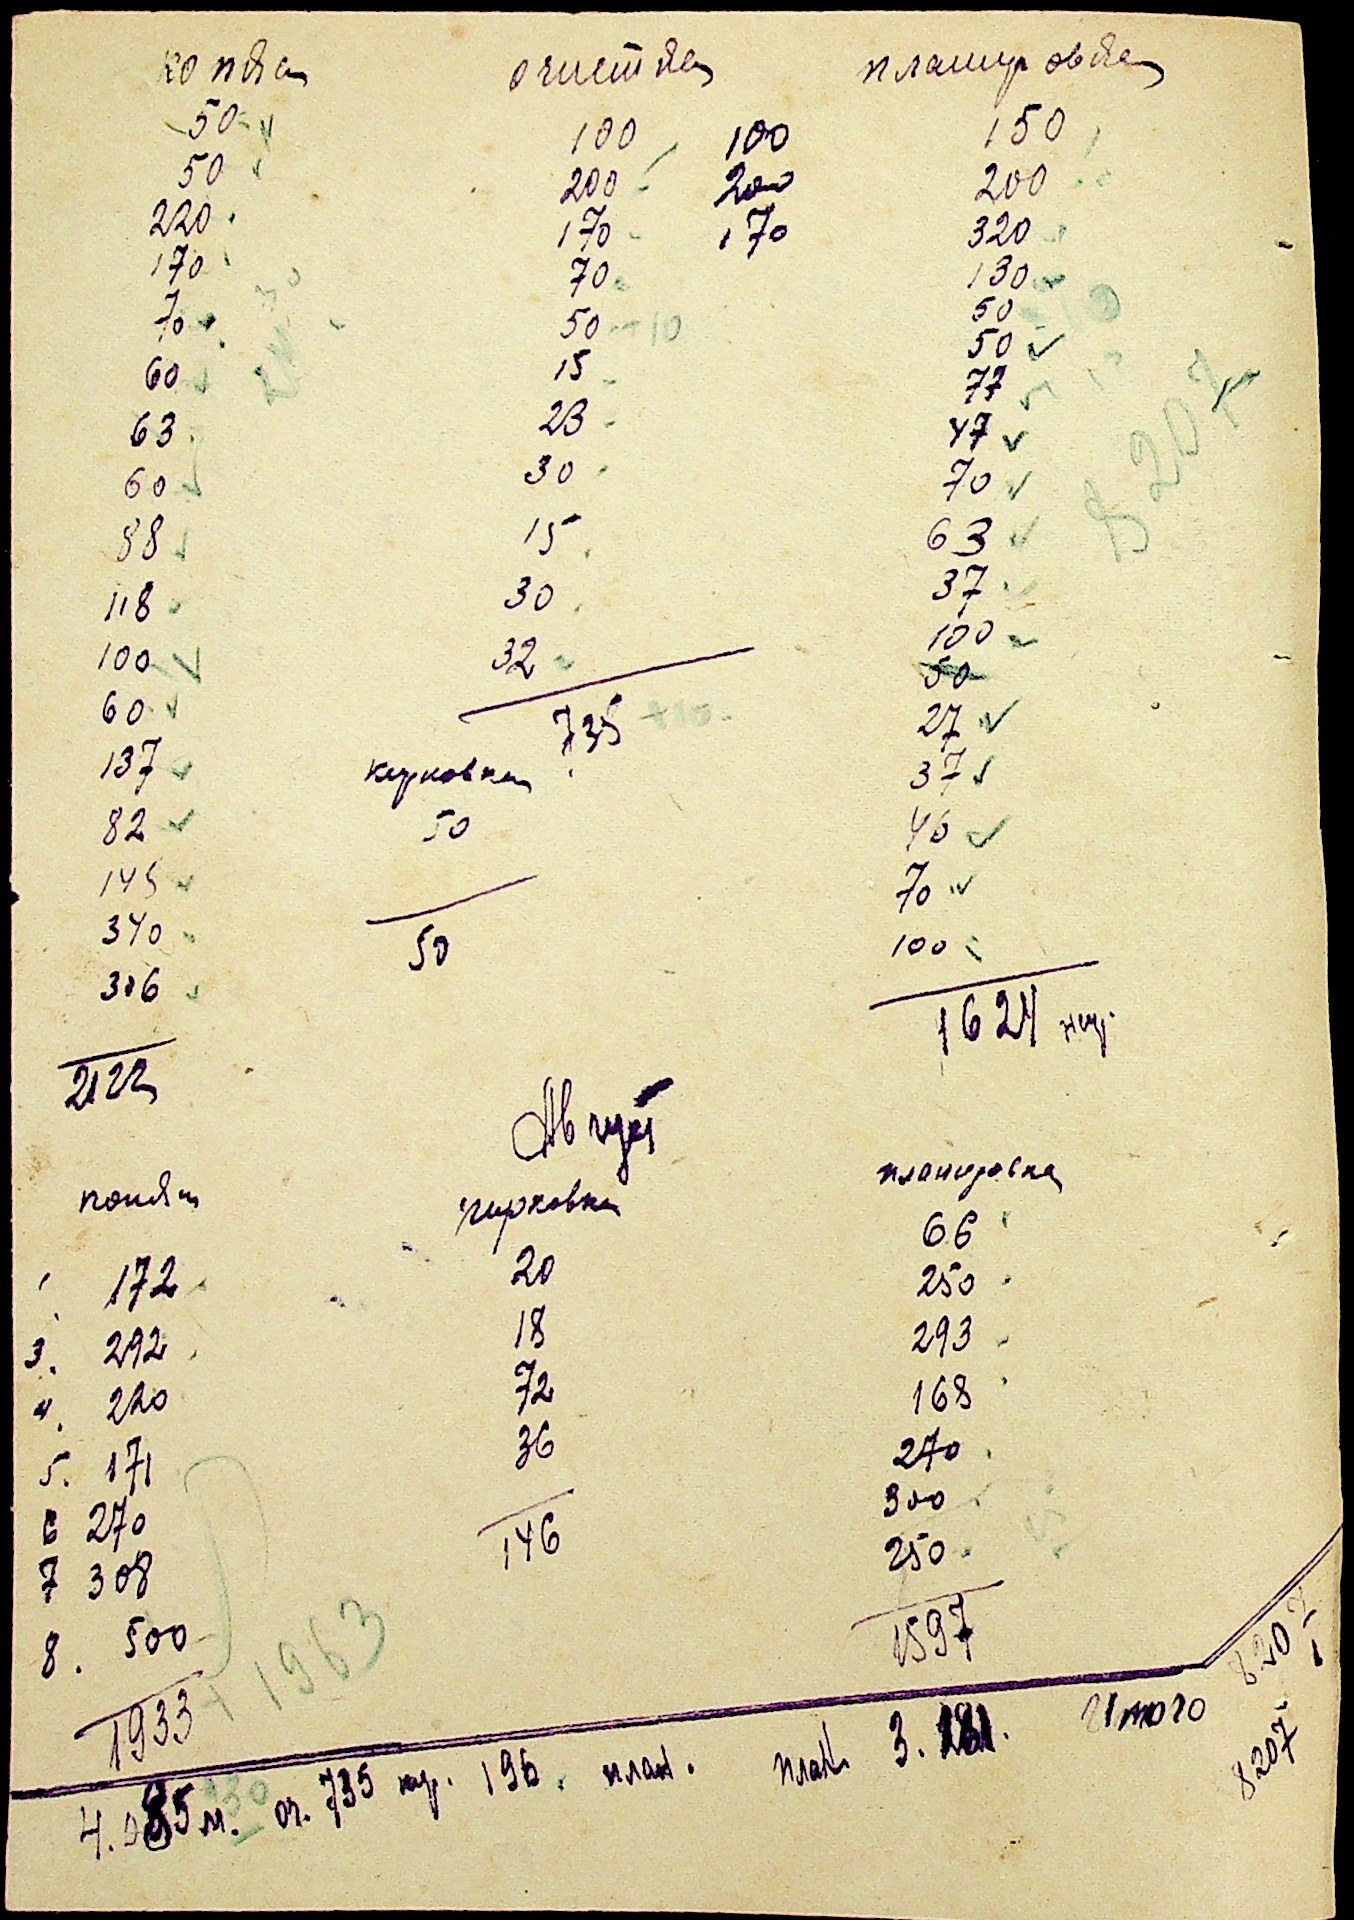 копка
50
50
220
170
70
60
63
60
88
118
100
60
137
82
145
340
306
2122
очистка
100 100
200 200
170 170
70
50 +10
15
23
30
15
30
32
735 +10
кирковка
50
50
планировка
150
200
320
130
50
50
77
47
70
63
37
100
50
27
37
46
70
100
1624
8207
Август
копка
1. 172
3. 292
4. 220
5. 171
6 270
7 308
8. 500
1933
+ 1963
кирковка
20
18
72
36
146
планировка
66
250
293
168
270
300
250
1597
8207
4.085 м. оч. 735 кир. 196. план. план. 3.181. Итого
+30
8207